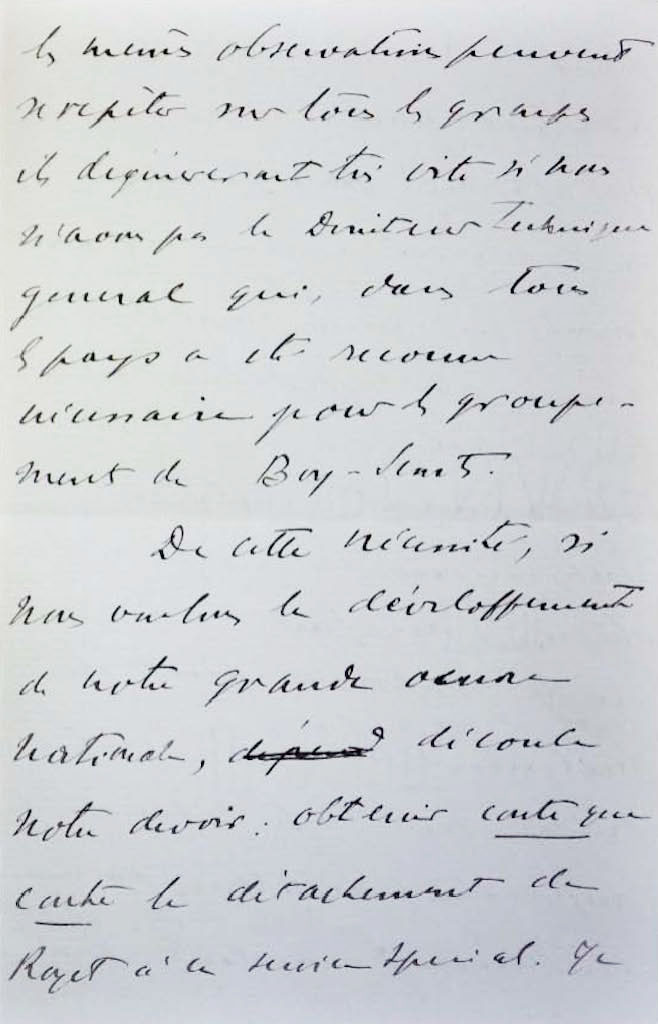 les mêmes observations peuvent
se répéter sur tous les groupes
ils dégénéreront très vite si nous
n'avons pas le Directeur Technique
general qui, dans tous
les pays a été reconnu
nécessaire pour le groupe-
ment de Boy-Scouts.
De cette nécessité, si
nous voulons le développement
de notre grande oeuvre
nationale, dépend découle
notre devoir : obtenir coute que
coute le détachement de
Royet à ce service spécial. Je